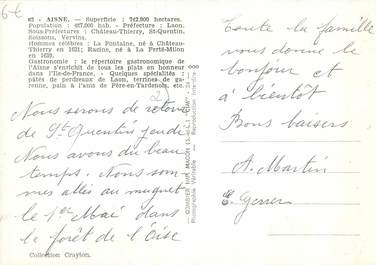 6€
02 - AISNE. — Superficie : 742.800 hectares.
Population : 487.000 hab. - Préfecture : Laon.
Sous-Préfectures : Château-Thierry, St-Quentin,
Soissons, Vervins.
Hommes célèbres : La Fontaine, né à Château-
Thierry en 1621; Racine, né à La Ferté-Milon
en 1639.
Gastronomie : le répertoire gastronomique de
l'Aisne s'enrichit de tous les plats en honneur
dans l'Ile-de-France. - Quelques spécialités :
pâtés de perdreaux de Laon, terrines de ga-
renne, pain à l'anis de Fère-en-Tardenois, etc.
Nous serons de retour
de St Quentin jeudi
Nous avons du beau
temps. Nous som-
mes allés au muguet
le 1er Mai dans
la forêt de l'Oise
Collection Crayton.
COMBIER IMP. MACON (S.-et-L.) "CIM"
Photographie Véritable - Reproduction Interdite
Toute la famille
vous donne le
bonjour et
à bientôt
Bons baisers
A. Martin